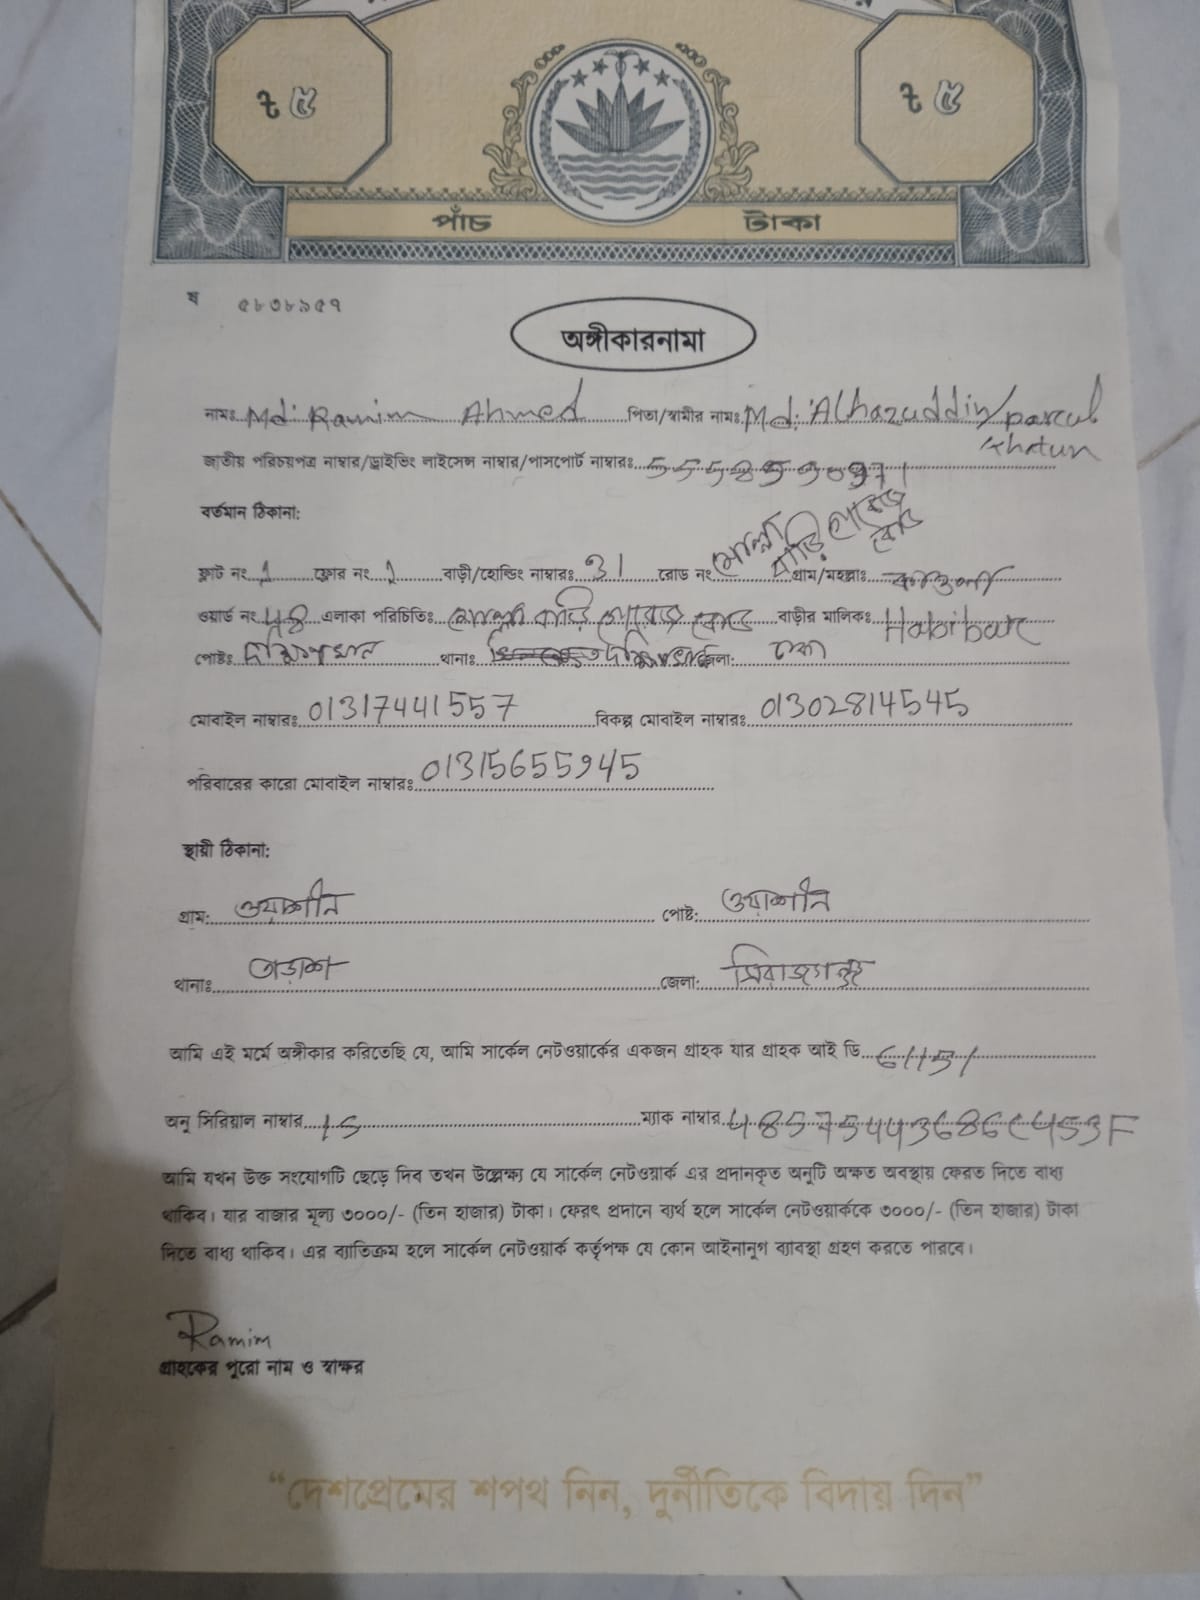 ৳ ৫ ৳ ৫
পাঁচ টাকা
ষ ৫৮৩৮৯৫৭
অঙ্গীকারনামা
নামঃ Md: Ramim Ahmed পিতা/স্বামীর নামঃ Md: Alhazuddin/parcul
khatun
জাতীয় পরিচয়পত্র নাম্বার/ড্রাইভিং লাইসেন্স নাম্বার/পাসপোর্ট নাম্বারঃ
বর্তমান ঠিকানা:
মোল্লা বাড়ি গ্যারেজ রোড
ফ্লাট নং 1 ফ্লোর নং 1 বাড়ী/হোল্ডিং নাম্বারঃ 31 রোড নং গ্রাম/মহল্লাঃ
ওয়ার্ড নং 48 এলাকা পরিচিতিঃ মোল্লা বাড়ি গ্যারেজ রোড বাড়ীর মালিকঃ Habibar
পোষ্টঃ থানাঃ জেলা: ঢাকা
মোবাইল নাম্বারঃ 01317441557 বিকল্প মোবাইল নাম্বারঃ 01302814545
পরিবারের কারো মোবাইল নাম্বারঃ 01315655945
স্থায়ী ঠিকানা:
গ্রাম: ওয়াশীন পোষ্ট: ওয়াশীন
থানাঃ তাড়াশ জেলা: সিরাজগঞ্জ
আমি এই মর্মে অঙ্গীকার করিতেছি যে, আমি সার্কেল নেটওয়ার্কের একজন গ্রাহক যার গ্রাহক আই ডি 61151
অনু সিরিয়াল নাম্বার 15 ম্যাক নাম্বার 48575443686C453F
আমি যখন উক্ত সংযোগটি ছেড়ে দিব তখন উল্লেক্ষ্য যে সার্কেল নেটওয়ার্ক এর প্রদানকৃত অনুটি অক্ষত অবস্থায় ফেরত দিতে বাধ্য
থাকিব। যার বাজার মূল্য ৩০০০/- (তিন হাজার) টাকা। ফেরৎ প্রদানে ব্যর্থ হলে সার্কেল নেটওয়ার্ককে ৩০০০/- (তিন হাজার) টাকা
দিতে বাধ্য থাকিব। এর ব্যতিক্রম হলে সার্কেল নেটওয়ার্ক কর্তৃপক্ষ যে কোন আইনানুগ ব্যাবস্থা গ্রহণ করতে পারবে।
Ramim
গ্রাহকের পুরো নাম ও স্বাক্ষর
“দেশপ্রেমের শপথ নিন, দুর্নীতিকে বিদায় দিন”